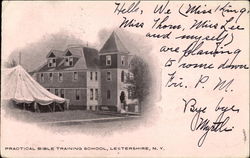 Hello, We (Miss King,
Miss Thom, Miss Lee
and myself) are
are planing
to come down
Fri. P. M.
Bye bye
Myrtle
PRACTICAL BIBLE TRAINING SCHOOL, LESTERSHIRE, N. Y.